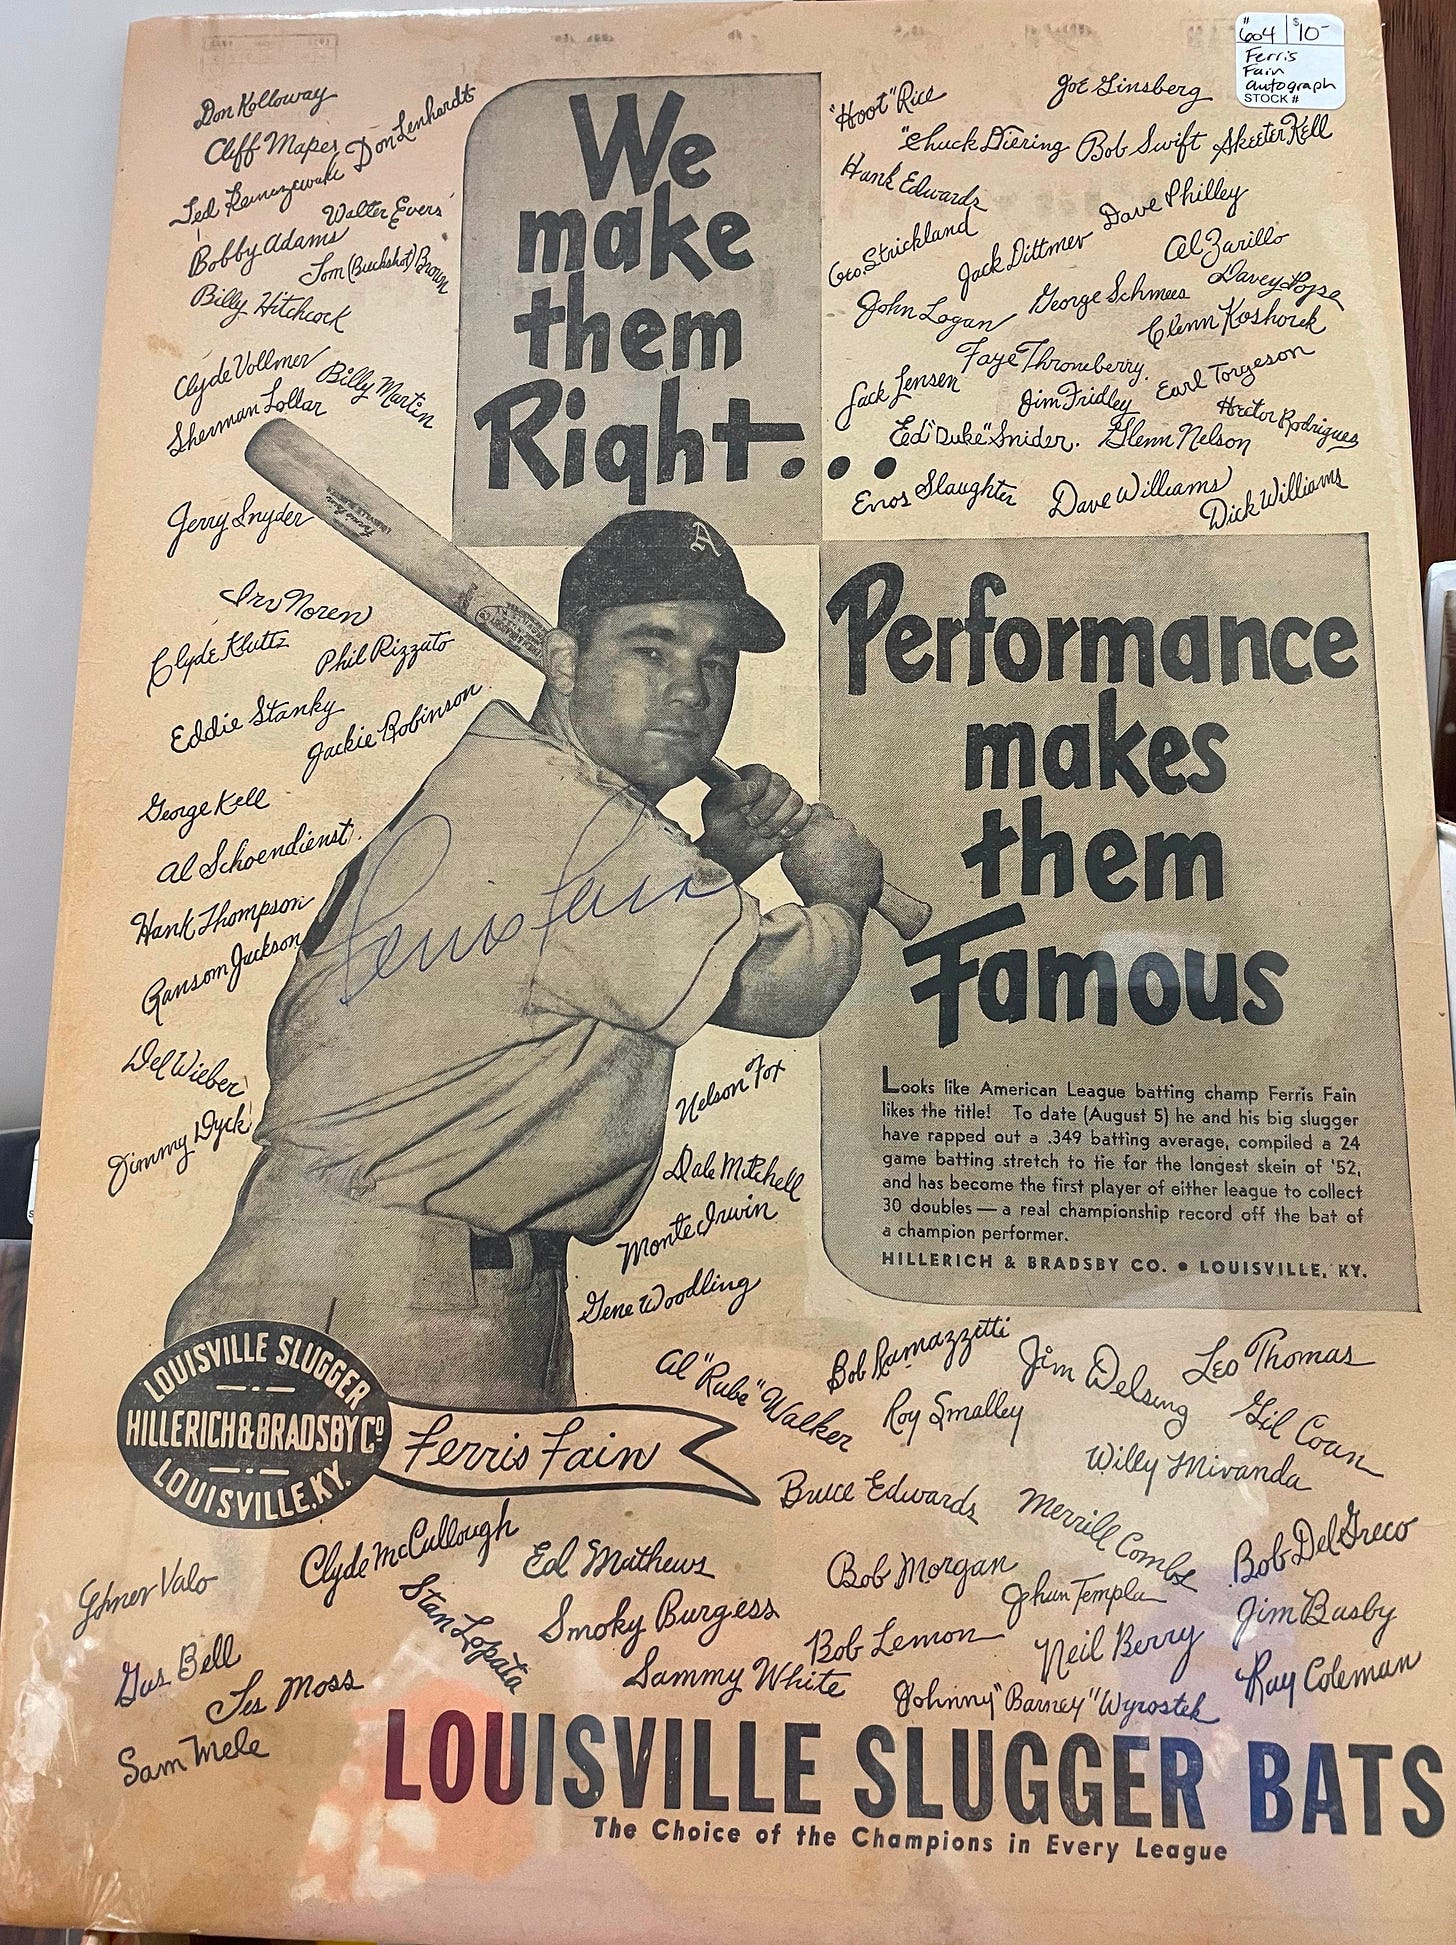 # 604 | $10-
Ferris
Fain
autograph
STOCK #
We
make
them
Right...
Don Kolloway
Cliff Mapes
Don Lenhardt
Ted
Walter Evers
Bobby Adams
Tom (Buckshot) Brown
Billy Hitchcock
Clyde Vollmer
Billy Martin
Sherman Lollar
Jerry Snyder
Irv Noren
Clyde Kluttz
Phil Rizzuto
Eddie Stanky
Jackie Robinson
George Kell
Al Schoendienst
Hank Thompson
Ransom Jackson
Del Wilber
Jimmy Dyck
"Hoot" Rice
Joe Ginsberg
"Chuck Diering
Bob Swift
Skeeter Kell
Hank Edwards
Dave Philley
Geo. Strickland
Jack Dittmer
Al Zarillo
Davey Pope
John Logan
George Schmees
Clenn Koshorek
Faye Throneberry
Jack Jensen
Jim Fridley
Earl Torgeson
Hector Rodriguez
Ed "Duke" Snider.
Glenn Nelson
Enos Slaughter
Dave Williams
Dick Williams
A
Performance
makes
them
Famous
Ferris Fain
Looks like American League batting champ Ferris Fain
likes the title! To date (August 5) he and his big slugger
have rapped out a .349 batting average, compiled a 24
game batting stretch to tie for the longest skein of '52,
and has become the first player of either league to collect
30 doubles — a real championship record off the bat of
a champion performer.
HILLERICH & BRADSBY CO. • LOUISVILLE, KY.
Nelson Fox
Dale Mitchell
Monte Irwin
Gene Woodling
Al "Rube" Walker
Bob Ramazzetti
Jim Delsing
Leo Thomas
Roy Smalley
Gil Coan
Willy Miranda
Bruce Edwards
Merrill Combs
LOUISVILLE SLUGGER
HILLERICH & BRADSBY CO
LOUISVILLE, KY.
Ferris Fain
Clyde McCullough
Ed Mathews
Bob Morgan
Bob Del Greco
Elmer Valo
Stan Lopata
Smoky Burgess
Jim Busby
Gus Bell
Les Moss
Sammy White
Bob Lemon
Neil Berry
Ray Coleman
Sam Mele
Johnny "Barney" Wyrostek
LOUISVILLE SLUGGER BATS
The Choice of the Champions in Every League